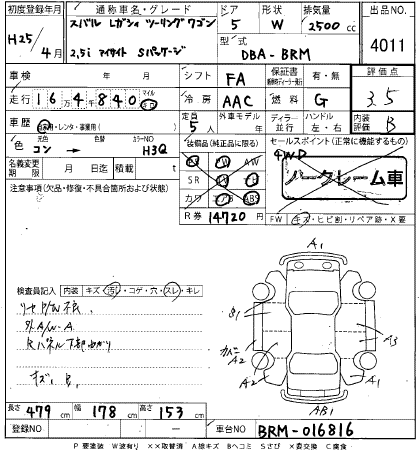 初度登録年月 通称車名・グレード ドア 形状 排気量 出品NO.
スバル レガシィ ツーリングワゴン 5 W 2500 cc
H25/4月 2.5i アイサイト Sパッケージ 型式 DBA-BRM 4011
車検 年 月 シフト FA 保証書 有・無 評価点
走行 164840 マイル 冷房 AAC 燃料 G 3.5
車歴 自家用・レンタ・事業用 定員 5人 外車モデル ディーラー 並行 ハンドル 左・右 内装評価 B
色 コン → 色替 カラーNO H3Q 装備品(純正品に限る) セールスポイント(正常に機能するもの)
4WD
名義変更期限 月 日迄 積載 t SR
注意事項(欠品・修復・不具合箇所および状態) カワ ABS
R券 14720 FW キズ・ヒビ割・リペア跡・X要
A1
検査員記入 内装 キズ・汚レ・コゲ・穴・スレ・キレ
外A/W-A
キズ
A3
A2
A2 A1
AB1
長さ 479 cm 幅 178 cm 高さ 153 cm
登録NO 車台NO BRM-016816
P要塗装 W波有り ××取替済 A線キズ Bヘコミ Sさび ×要交換 C腐食